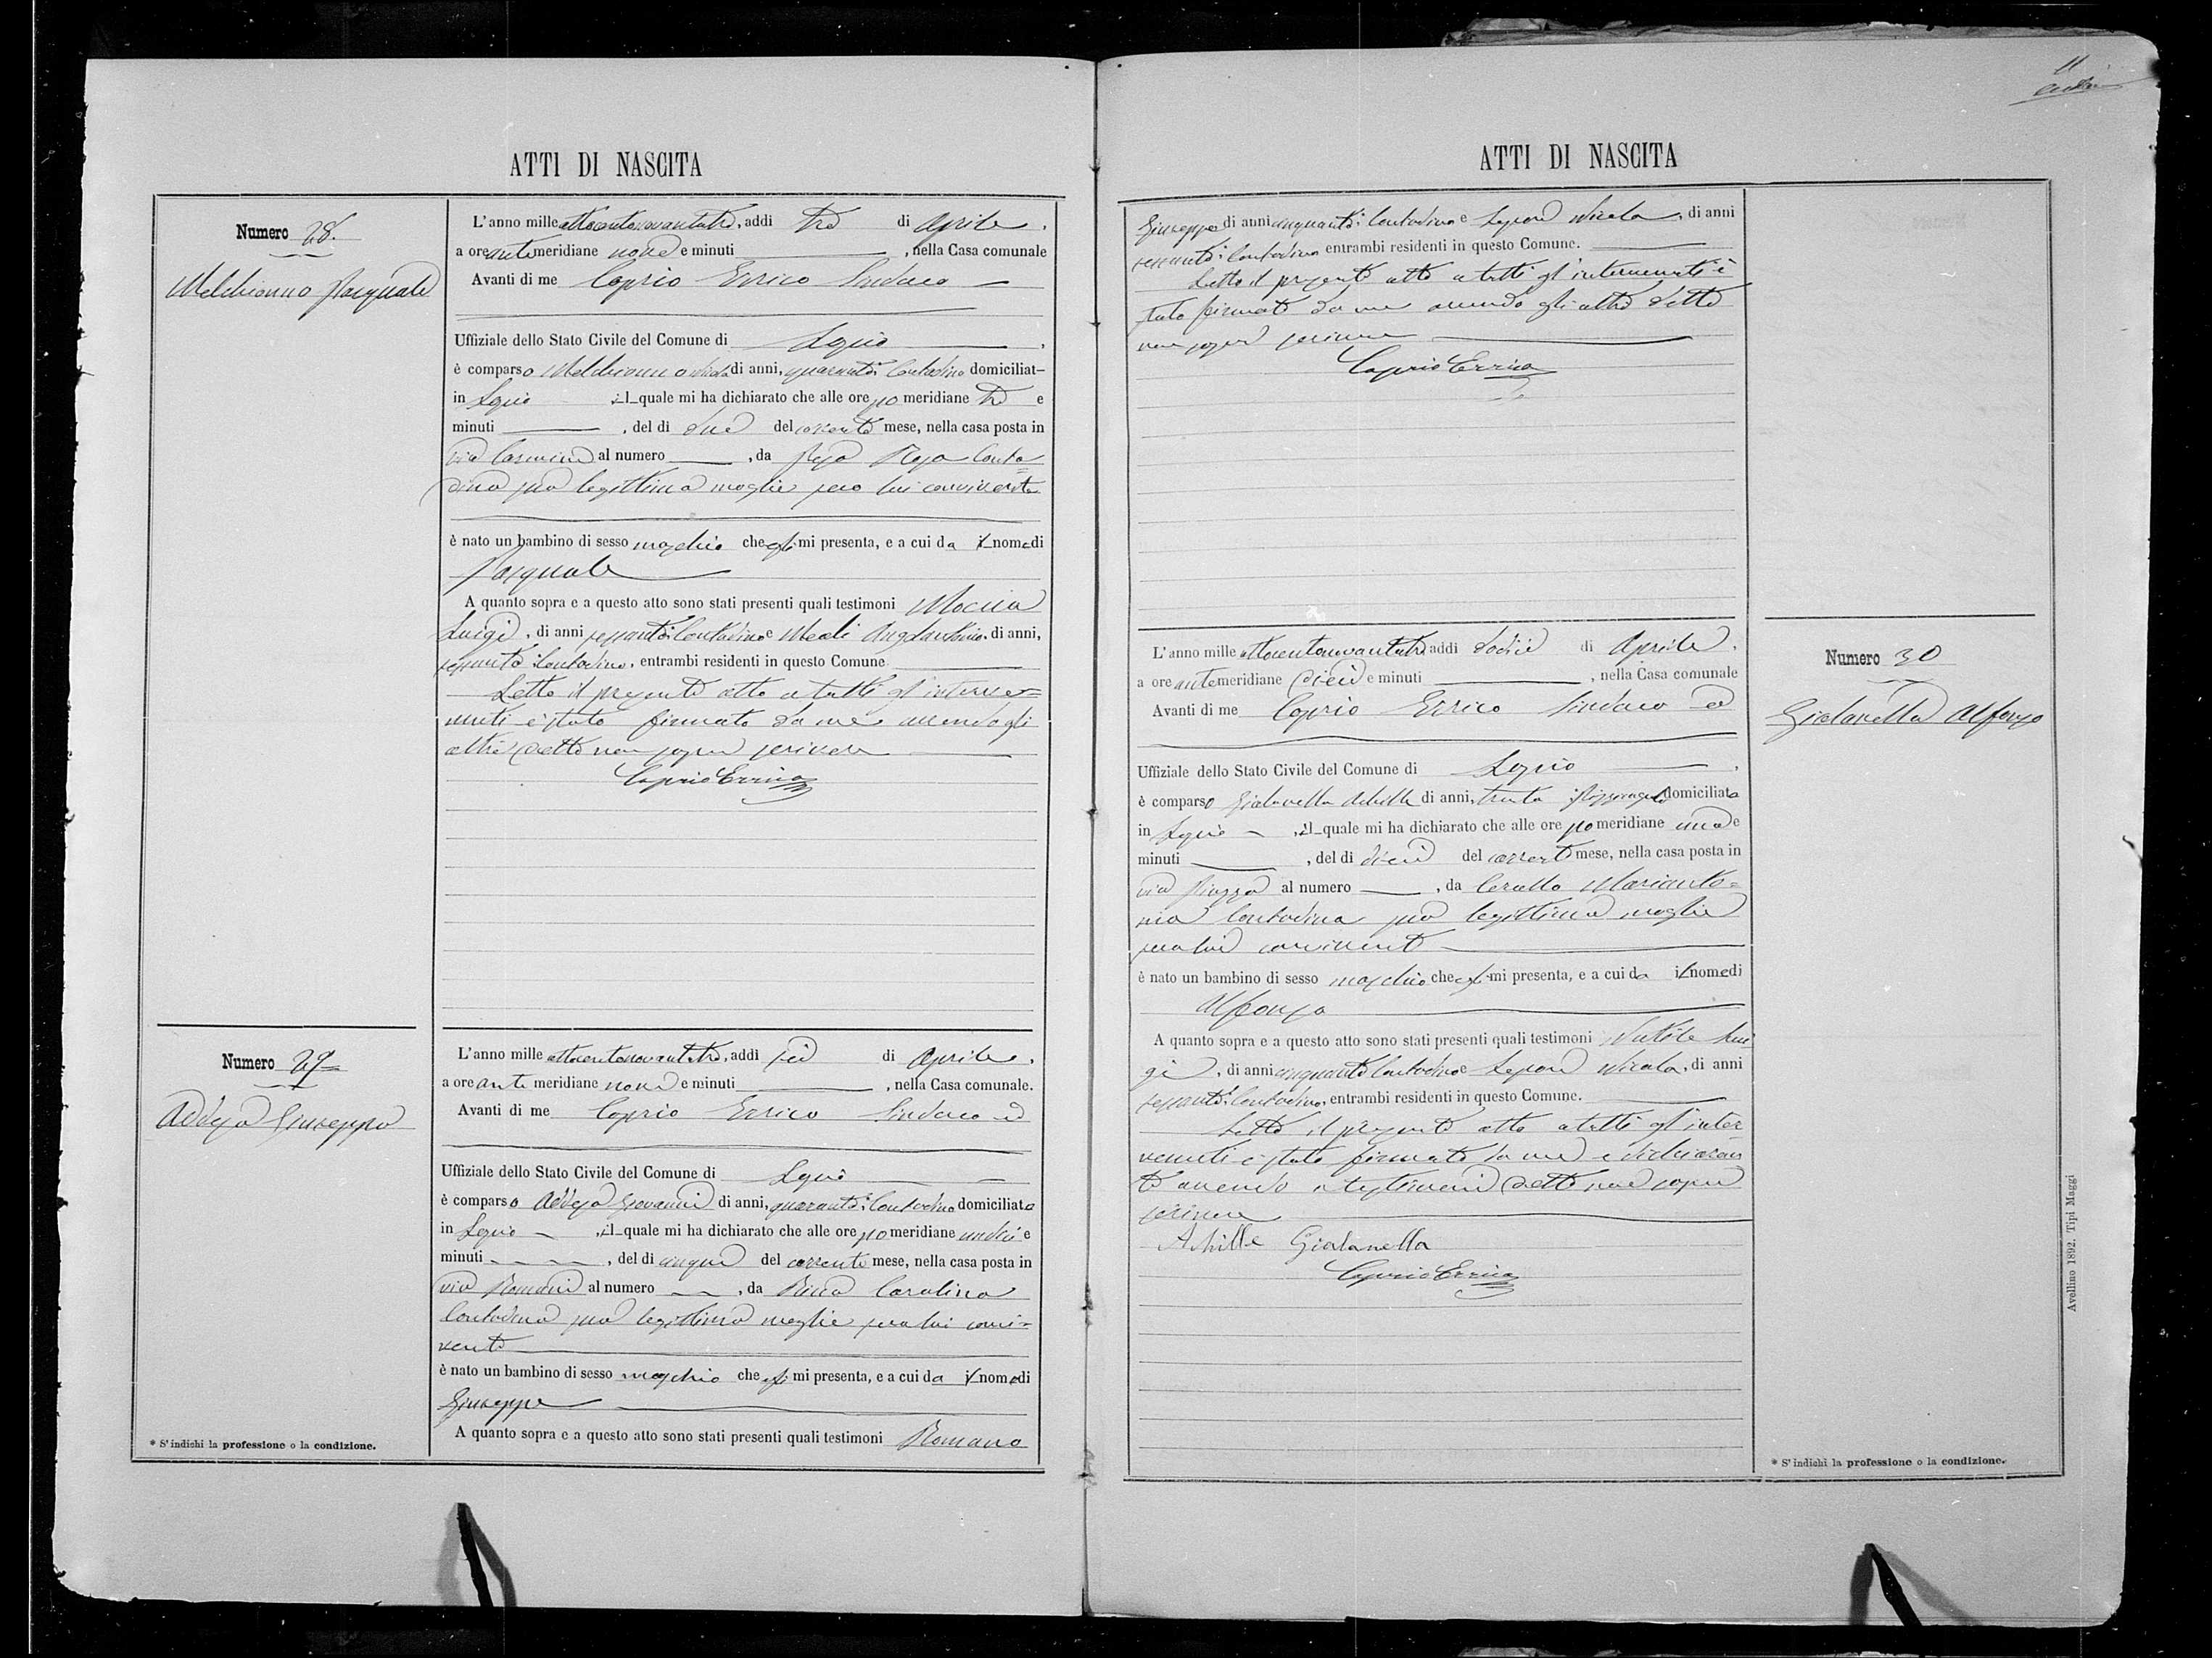 11
ATTI DI NASCITA
Numero 28.
Melchionno Pasquale
L'anno mille ottocentonovantatre, addi tre di Aprile,
a ore ante meridiane nove e minuti , nella Casa comunale
Avanti di me Caprio Errico Sindaco
Uffiziale dello Stato Civile del Comune di Lapio ,
è comparso Melchionno di anni, quaranta: Contadino domiciliat
in Lapio il quale mi ha dichiarato che alle ore po meridiane tre e
minuti , del di due del corrente mese, nella casa posta in
via Carmine al numero , da Rosa Conta=
dina sua legittima moglie seco lui convivente
è nato un bambino di sesso maschio che egli mi presenta, e a cui da il nome di
Pasquale
A quanto sopra e a questo atto sono stati presenti quali testimoni Moccia
Luigi, di anni sessanta: Contadino e Meoli Angelantonio, di anni,
sessanta: Contadino, entrambi residenti in questo Comune
Letto il presente atto a tutti gl'interve=
nuti è stato firmato da me avendo gli
altri detto non saper scrivere
Caprio Errico
Numero 29
Addesa Giuseppe
L'anno mille ottocentonovantatre, addi sei di Aprile,
a ore ante meridiane nove e minuti , nella Casa comunale.
Avanti di me Caprio Errico Sindaco ed
Uffiziale dello Stato Civile del Comune di Lapio
è comparso Addesa Giovanni di anni, quaranta: Contadino domiciliato
in Lapio , il quale mi ha dichiarato che alle ore po meridiane undici e
minuti , del di cinque del corrente mese, nella casa posta in
via Romani al numero , da Carolina
Contadina sua legittima moglie seco lui convi=
vente
è nato un bambino di sesso maschio che egli mi presenta, e a cui da il nome di
Giuseppe
A quanto sopra e a questo atto sono stati presenti quali testimoni Romano
* S'indichi la professione o la condizione.
ATTI DI NASCITA
Giuseppe di anni cinquanta: Contadino e Lepore Nicola, di anni
sessanta: Contadino entrambi residenti in questo Comune.
Letto il presente atto a tutti gl'intervenuti è
stato firmato da me avendo gli altri detto
non saper scrivere
Caprio Errico
Numero 30
Gialanella Alfonso
L'anno mille ottocentonovantatre addi dodici di Aprile,
a ore antemeridiane dieci e minuti , nella Casa comunale
Avanti di me Caprio Errico Sindaco ed
Uffiziale dello Stato Civile del Comune di Lapio ,
è comparso Gialanella Achille di anni, trenta : domiciliato
in Lapio , il quale mi ha dichiarato che alle ore po meridiane una e
minuti , del di dieci del corrente mese, nella casa posta in
via Piazza al numero , da Cerullo Marianto=
nia Contadina sua legittima moglie
seco lui convivente
è nato un bambino di sesso maschio che egli mi presenta, e a cui da il nome di
Alfonso
A quanto sopra e a questo atto sono stati presenti quali testimoni Lui
gi, di anni cinquanta Contadino e Lepore Nicola, di anni
sessanta: Contadino, entrambi residenti in questo Comune.
Letto il presente atto a tutti gl'inter
venuti è stato firmato da me e dichiaran
te avendo i testimoni detto non saper
scrivere
Achille Gialanella
Caprio Errico
* S'indichi la professione o la condizione.
Avellino 1892. Tipi Maggi